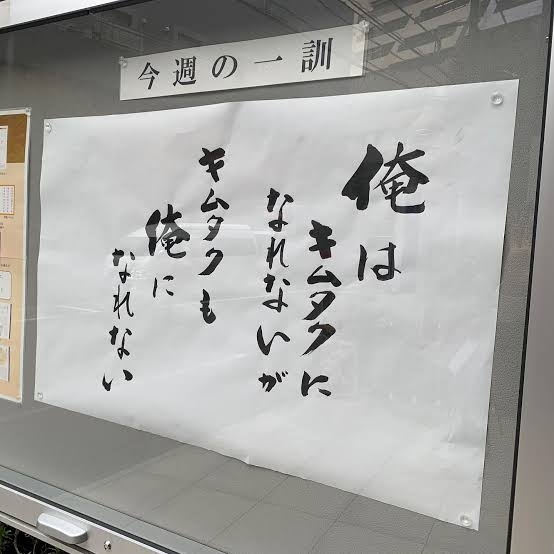 今週の一訓
俺は
キムタクに
なれないが
キムタクも
俺に
なれない